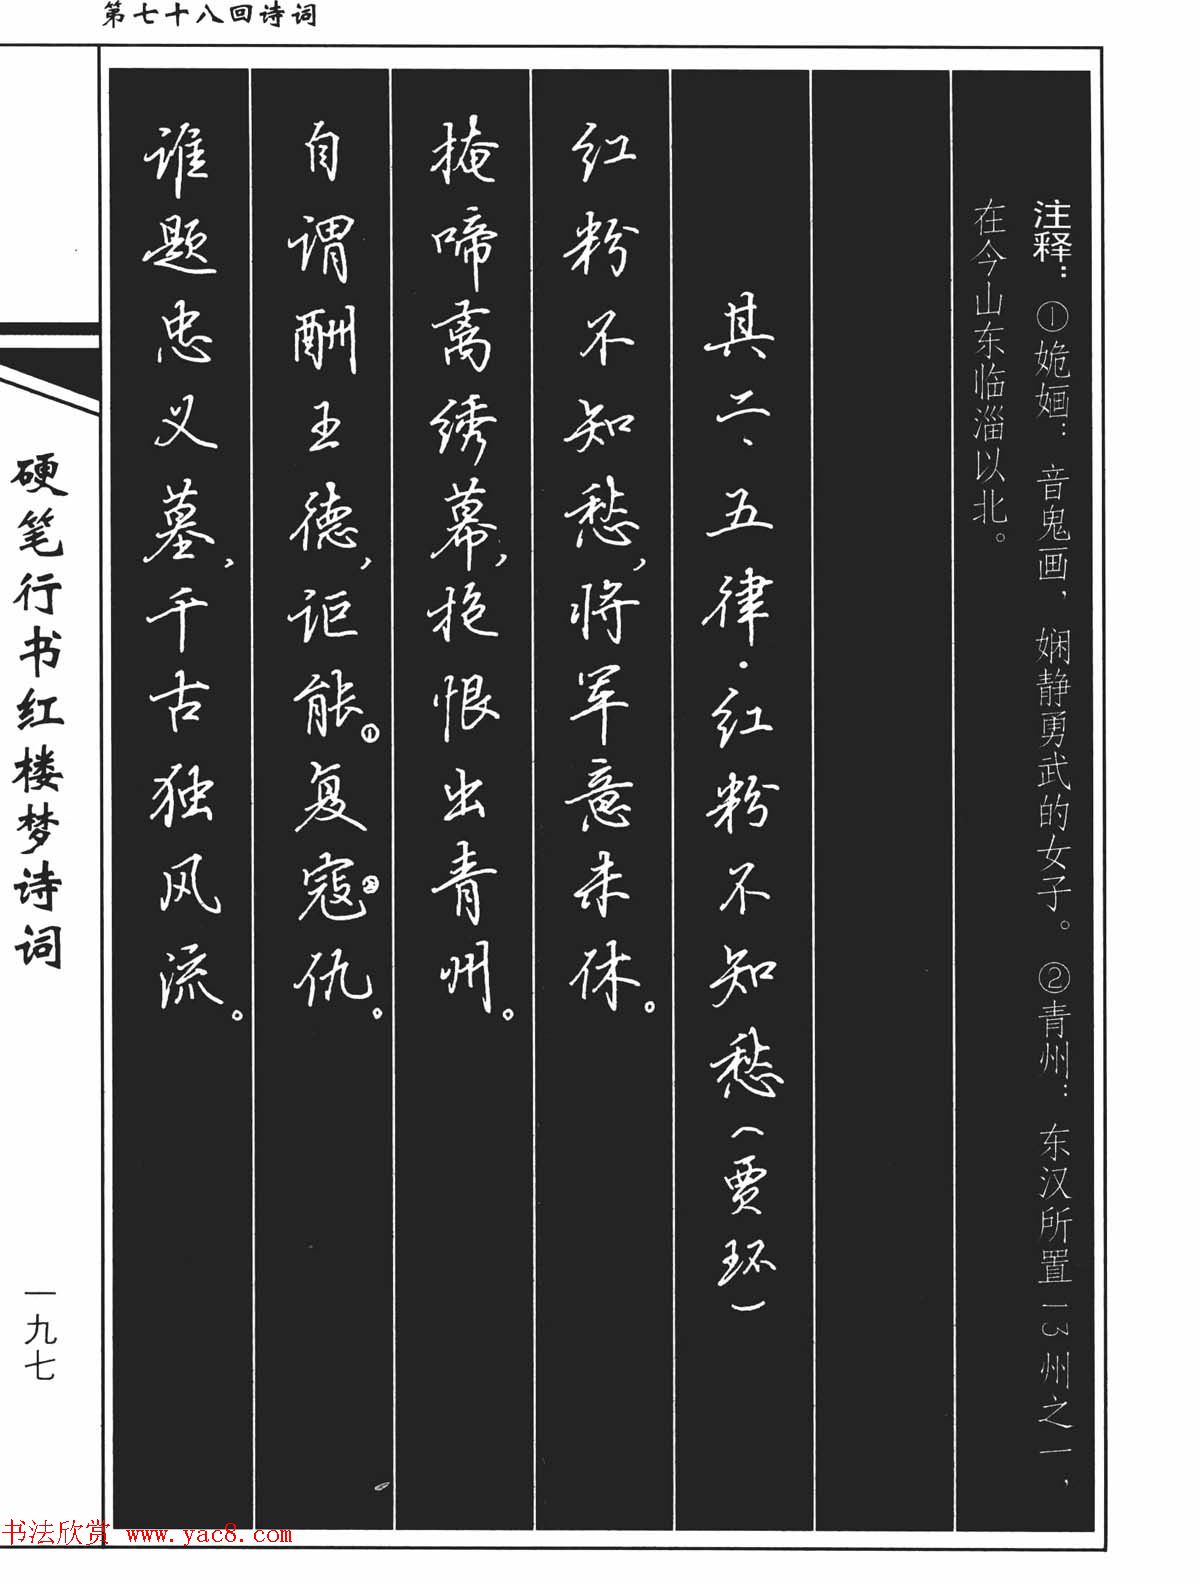 第七十八回诗词
注释：①姽婳：音鬼画，娴静勇武的女子。②青州：东汉所置13州之一，
在今山东临淄以北。
其二、五律·红粉不知愁（贾环）
红粉不知愁，将军意未休。
掩啼离绣幕，抱恨出青州。
自谓酬王德，讵能①复寇②仇。
谁题忠义墓，千古独风流。
硬笔行书红楼梦诗词
一九七
书法欣赏 www.yac8.com